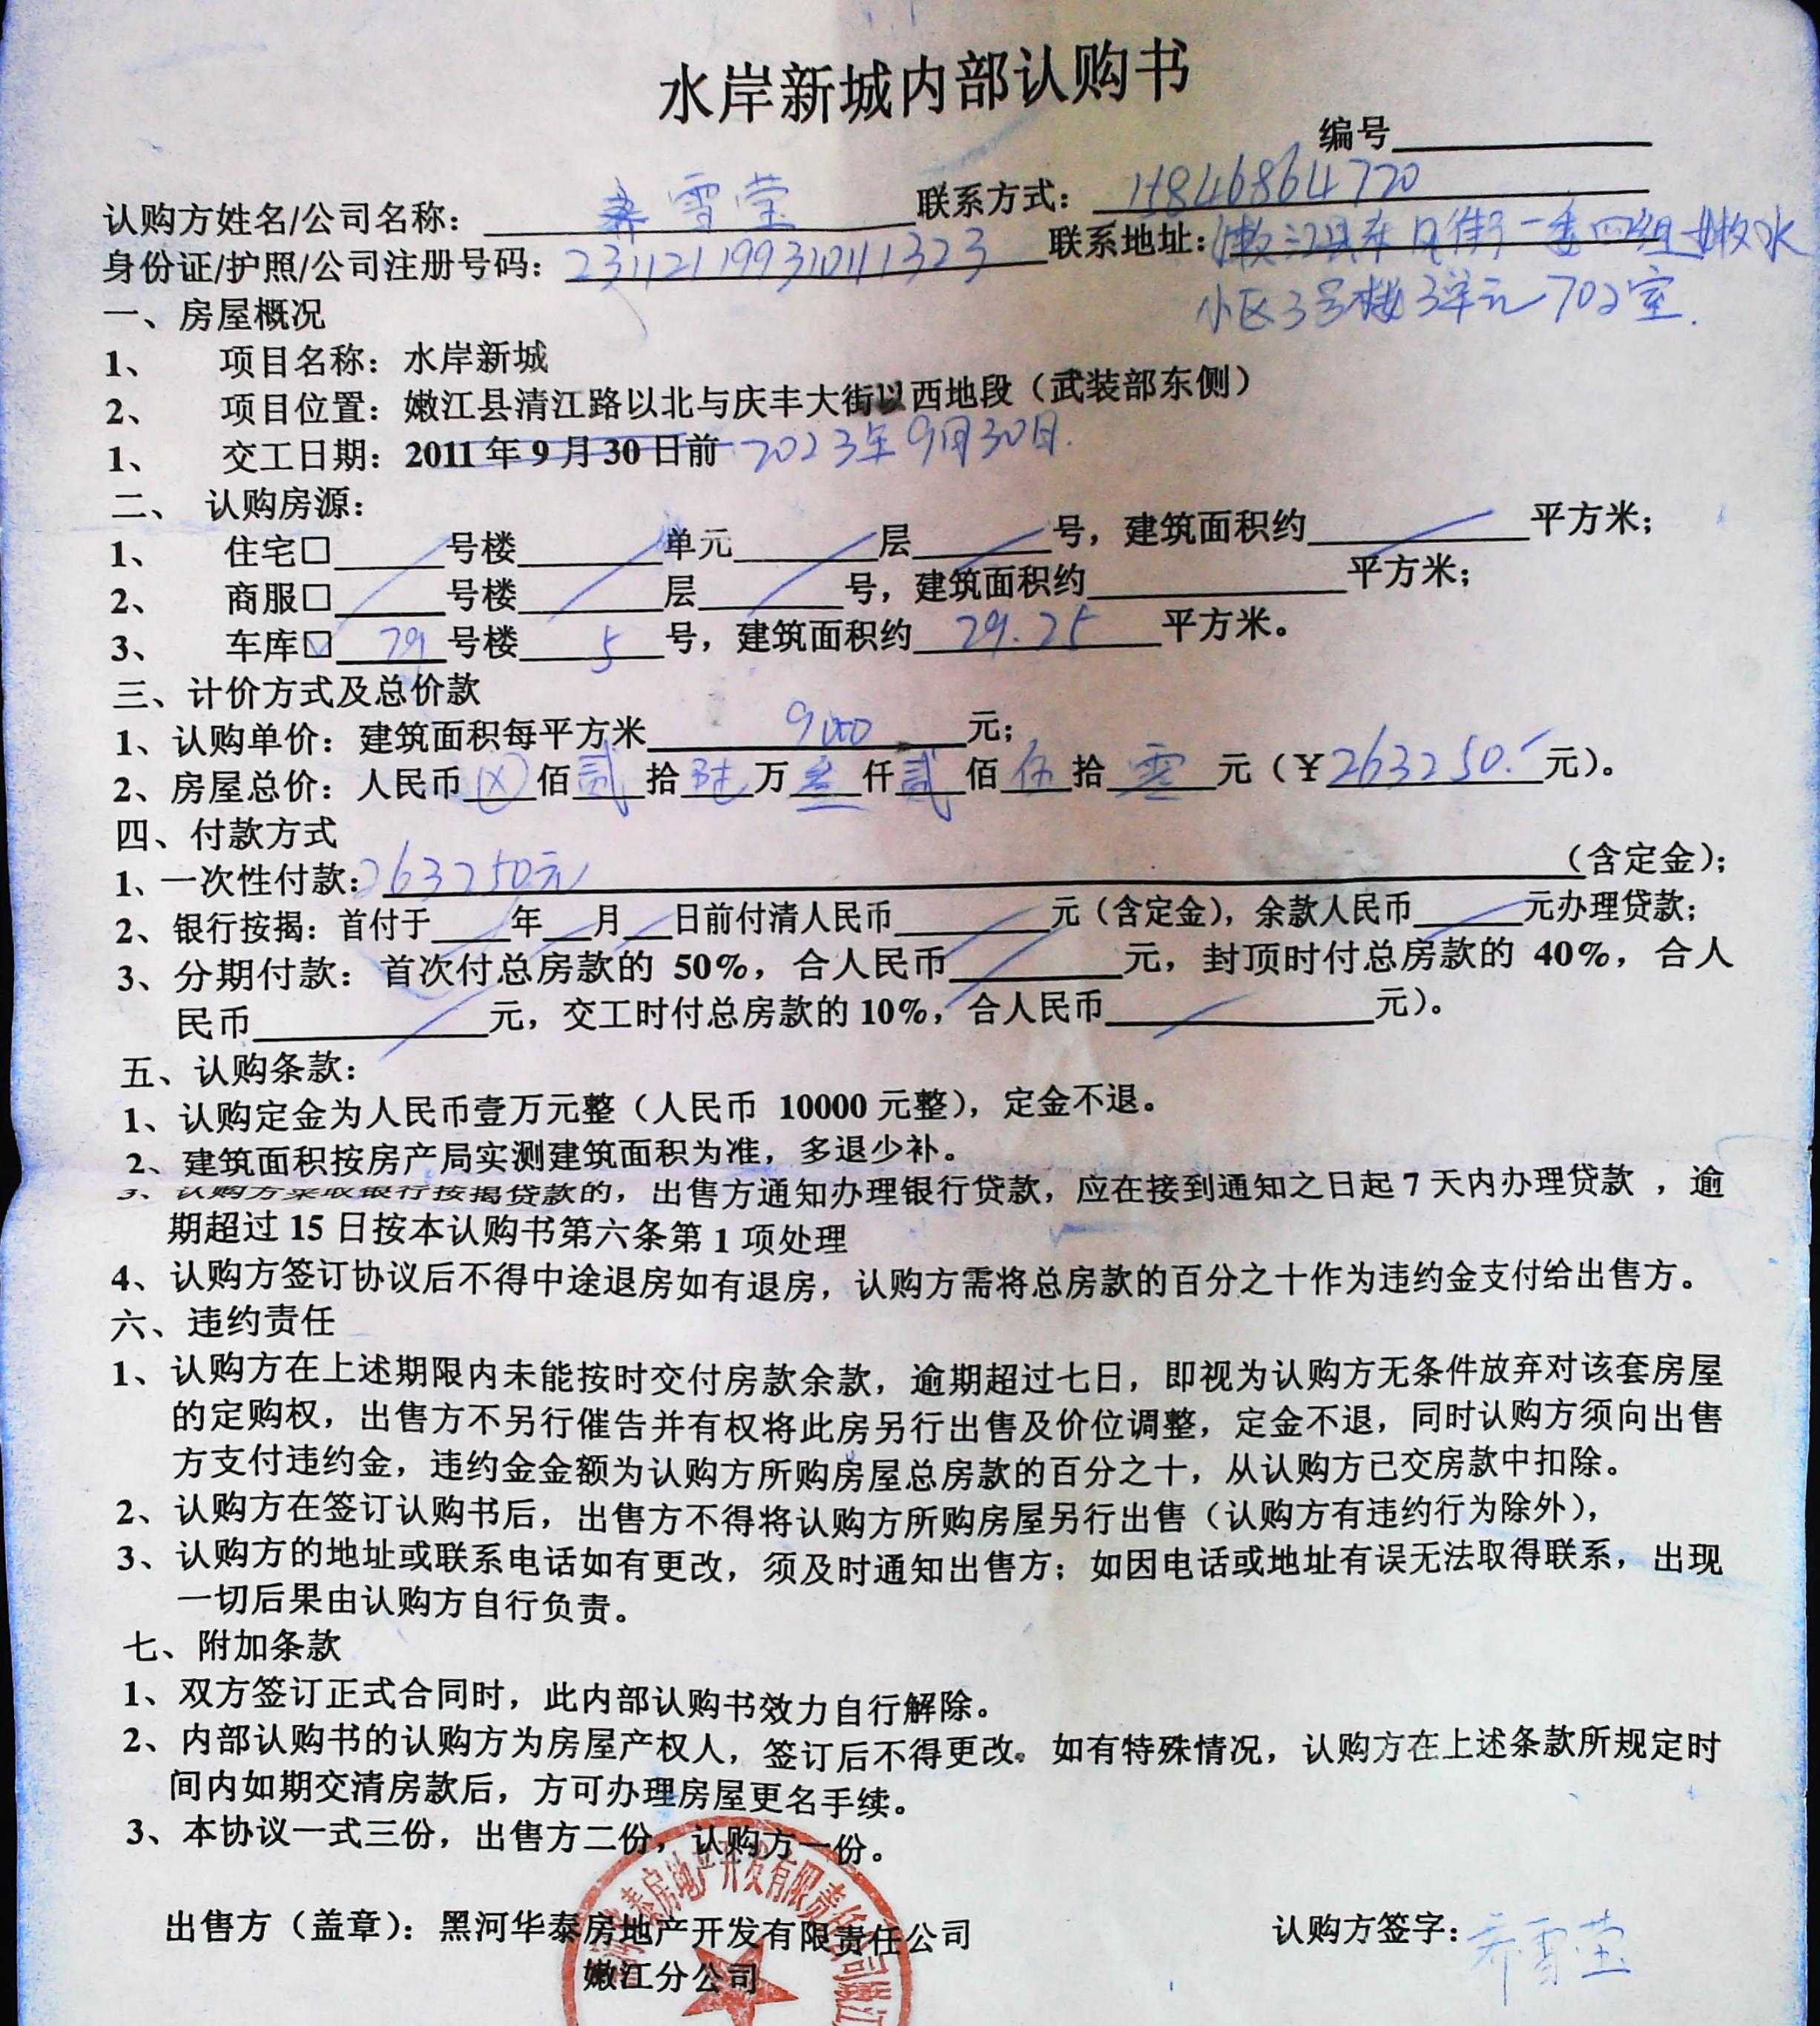 水岸新城内部认购书
编号
认购方姓名/公司名称： 乔雪莹 联系方式： 15846864720
身份证/护照/公司注册号码： 231121199310111323 联系地址： 嫩江县东风街一委四组嫩水
小区3号楼3单元702室.
一、房屋概况
1、 项目名称：水岸新城
2、 项目位置：嫩江县清江路以北与庆丰大街以西地段（武装部东侧）
1、 交工日期：2011年9月30日前 2023年9月30日.
二、 认购房源：
1、 住宅□ 号楼 单元 层 号，建筑面积约 平方米；
2、 商服□ 号楼 层 号，建筑面积约 平方米；
3、 车库☑ 79 号楼 5 号，建筑面积约 29.25 平方米。
三、计价方式及总价款
1、认购单价：建筑面积每平方米 9000 元；
2、房屋总价：人民币 ⊗ 佰 贰 拾 陆 万 叁 仟 贰 佰 伍 拾 零 元（￥263250.- 元）。
四、付款方式
1、一次性付款：263250元 （含定金）；
2、银行按揭：首付于 年 月 日前付清人民币 元（含定金），余款人民币 元办理贷款；
3、分期付款：首次付总房款的 50%，合人民币 元，封顶时付总房款的 40%，合人
民币 元，交工时付总房款的 10%，合人民币 元）。
五、认购条款：
1、认购定金为人民币壹万元整（人民币 10000 元整），定金不退。
2、建筑面积按房产局实测建筑面积为准，多退少补。
3、认购方采取银行按揭贷款的，出售方通知办理银行贷款，应在接到通知之日起 7 天内办理贷款 ，逾
期超过 15 日按本认购书第六条第 1 项处理
4、认购方签订协议后不得中途退房如有退房，认购方需将总房款的百分之十作为违约金支付给出售方。
六、违约责任
1、认购方在上述期限内未能按时交付房款余款，逾期超过七日，即视为认购方无条件放弃对该套房屋
的定购权，出售方不另行催告并有权将此房另行出售及价位调整，定金不退，同时认购方须向出售
方支付违约金，违约金金额为认购方所购房屋总房款的百分之十，从认购方已交房款中扣除。
2、认购方在签订认购书后，出售方不得将认购方所购房屋另行出售（认购方有违约行为除外），
3、认购方的地址或联系电话如有更改，须及时通知出售方；如因电话或地址有误无法取得联系，出现
一切后果由认购方自行负责。
七、附加条款
1、双方签订正式合同时，此内部认购书效力自行解除。
2、内部认购书的认购方为房屋产权人，签订后不得更改。如有特殊情况，认购方在上述条款所规定时
间内如期交清房款后，方可办理房屋更名手续。
3、本协议一式三份，出售方二份，认购方一份。
出售方（盖章）：黑河华泰房地产开发有限责任公司 认购方签字：乔雪莹
嫩江分公司
泰房地产开发有限责任公司嫩江